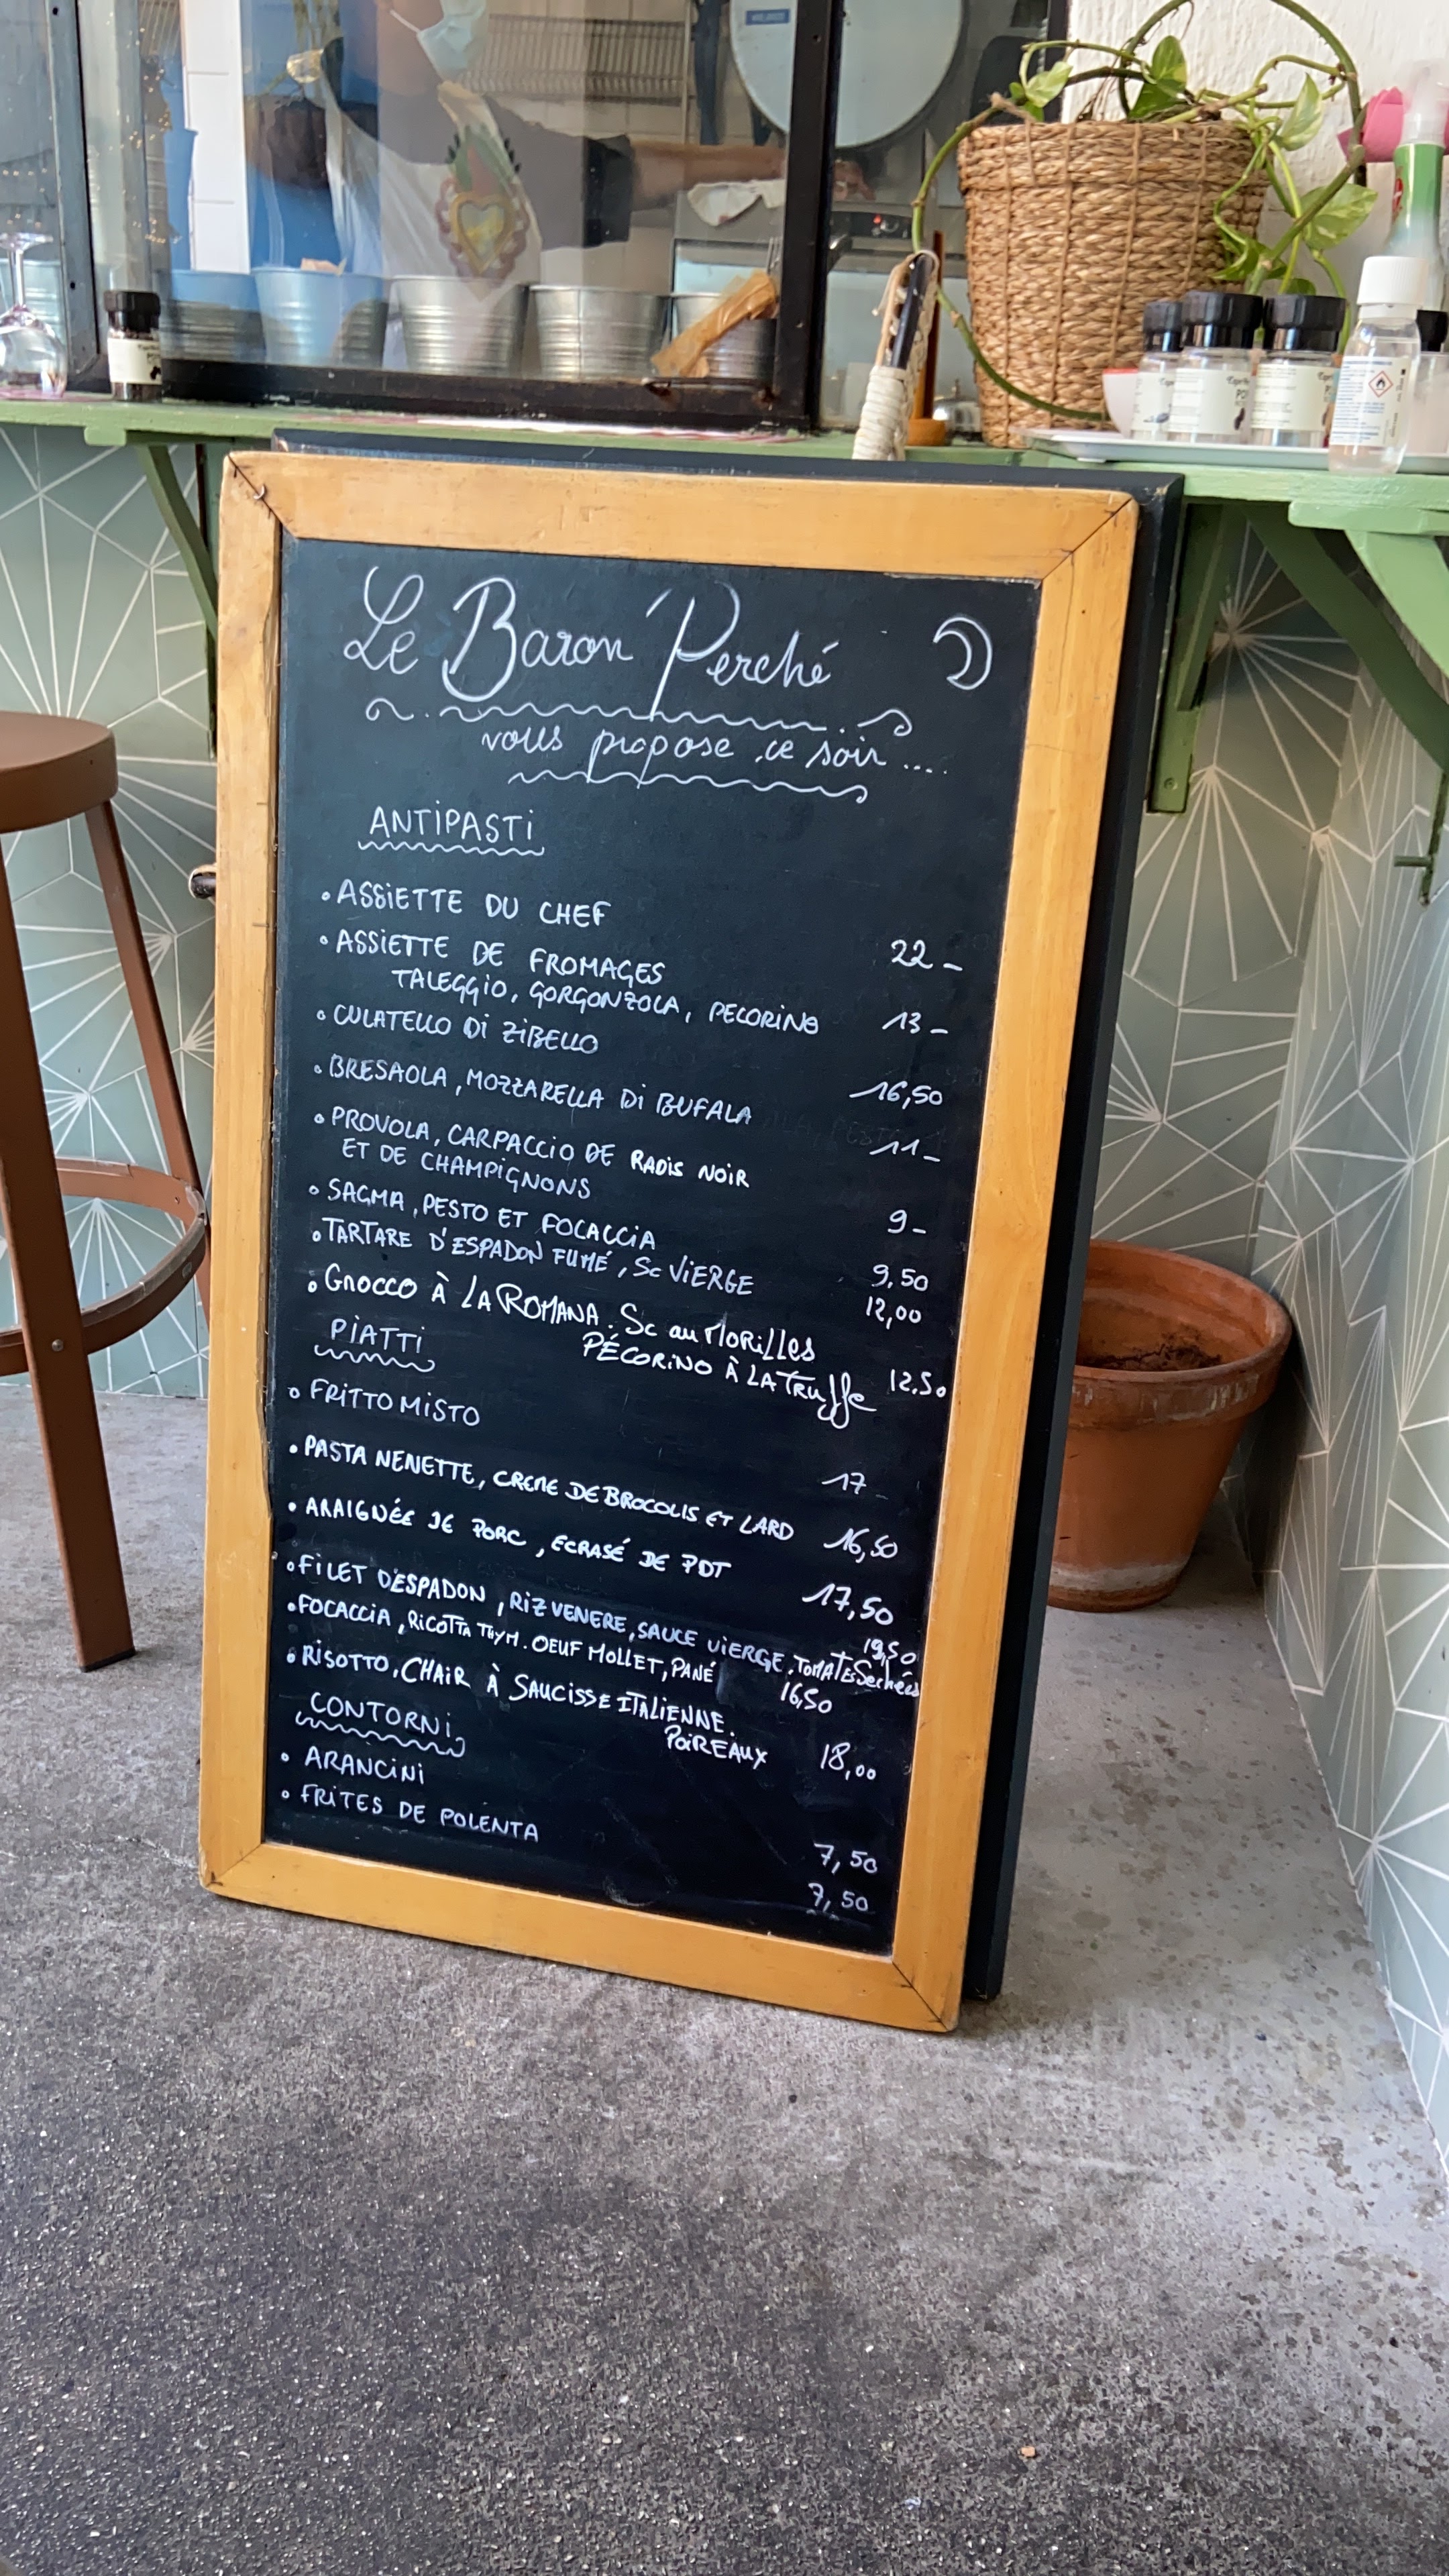 Le Baron Perché
vous propose ce soir ....
ANTIPASTI
• ASSIETTE DU CHEF 22 -
• ASSIETTE DE FROMAGES
TALEGGIO, GORGONZOLA, PECORINO 13 -
• CULATELLO DI ZIBELLO 16,50
• BRESAOLA, MOZZARELLA DI BUFALA 11 -
• PROVOLA, CARPACCIO DE RADIS NOIR
ET DE CHAMPIGNONS 9 -
• SAGMA, PESTO ET FOCACCIA 9,50
• TARTARE D'ESPADON FUMÉ, SC VIERGE 12,00
• GNOCCO À LA ROMANA. Sc au MORILLES
PÉCORINO À LA TRUffe 12.50
PIATTI
• FRITTO MISTO 17 -
• PASTA NENETTE, CREME DE BROCOLIS ET LARD 16,50
• ARAIGNÉE DE PORC, ECRASÉ DE PDT 17,50
• FILET D'ESPADON, RIZ VENERE, SAUCE VIERGE, TOMATE Sechées 19,50
• FOCACCIA, RICOTTA THYM. OEUF MOLLET, PANÉ 16,50
• RISOTTO, CHAIR À SAUCISSE ITALIENNE.
POIREAUX 18,00
CONTORNI
• ARANCINI 7,50
• FRITES DE POLENTA 7,50